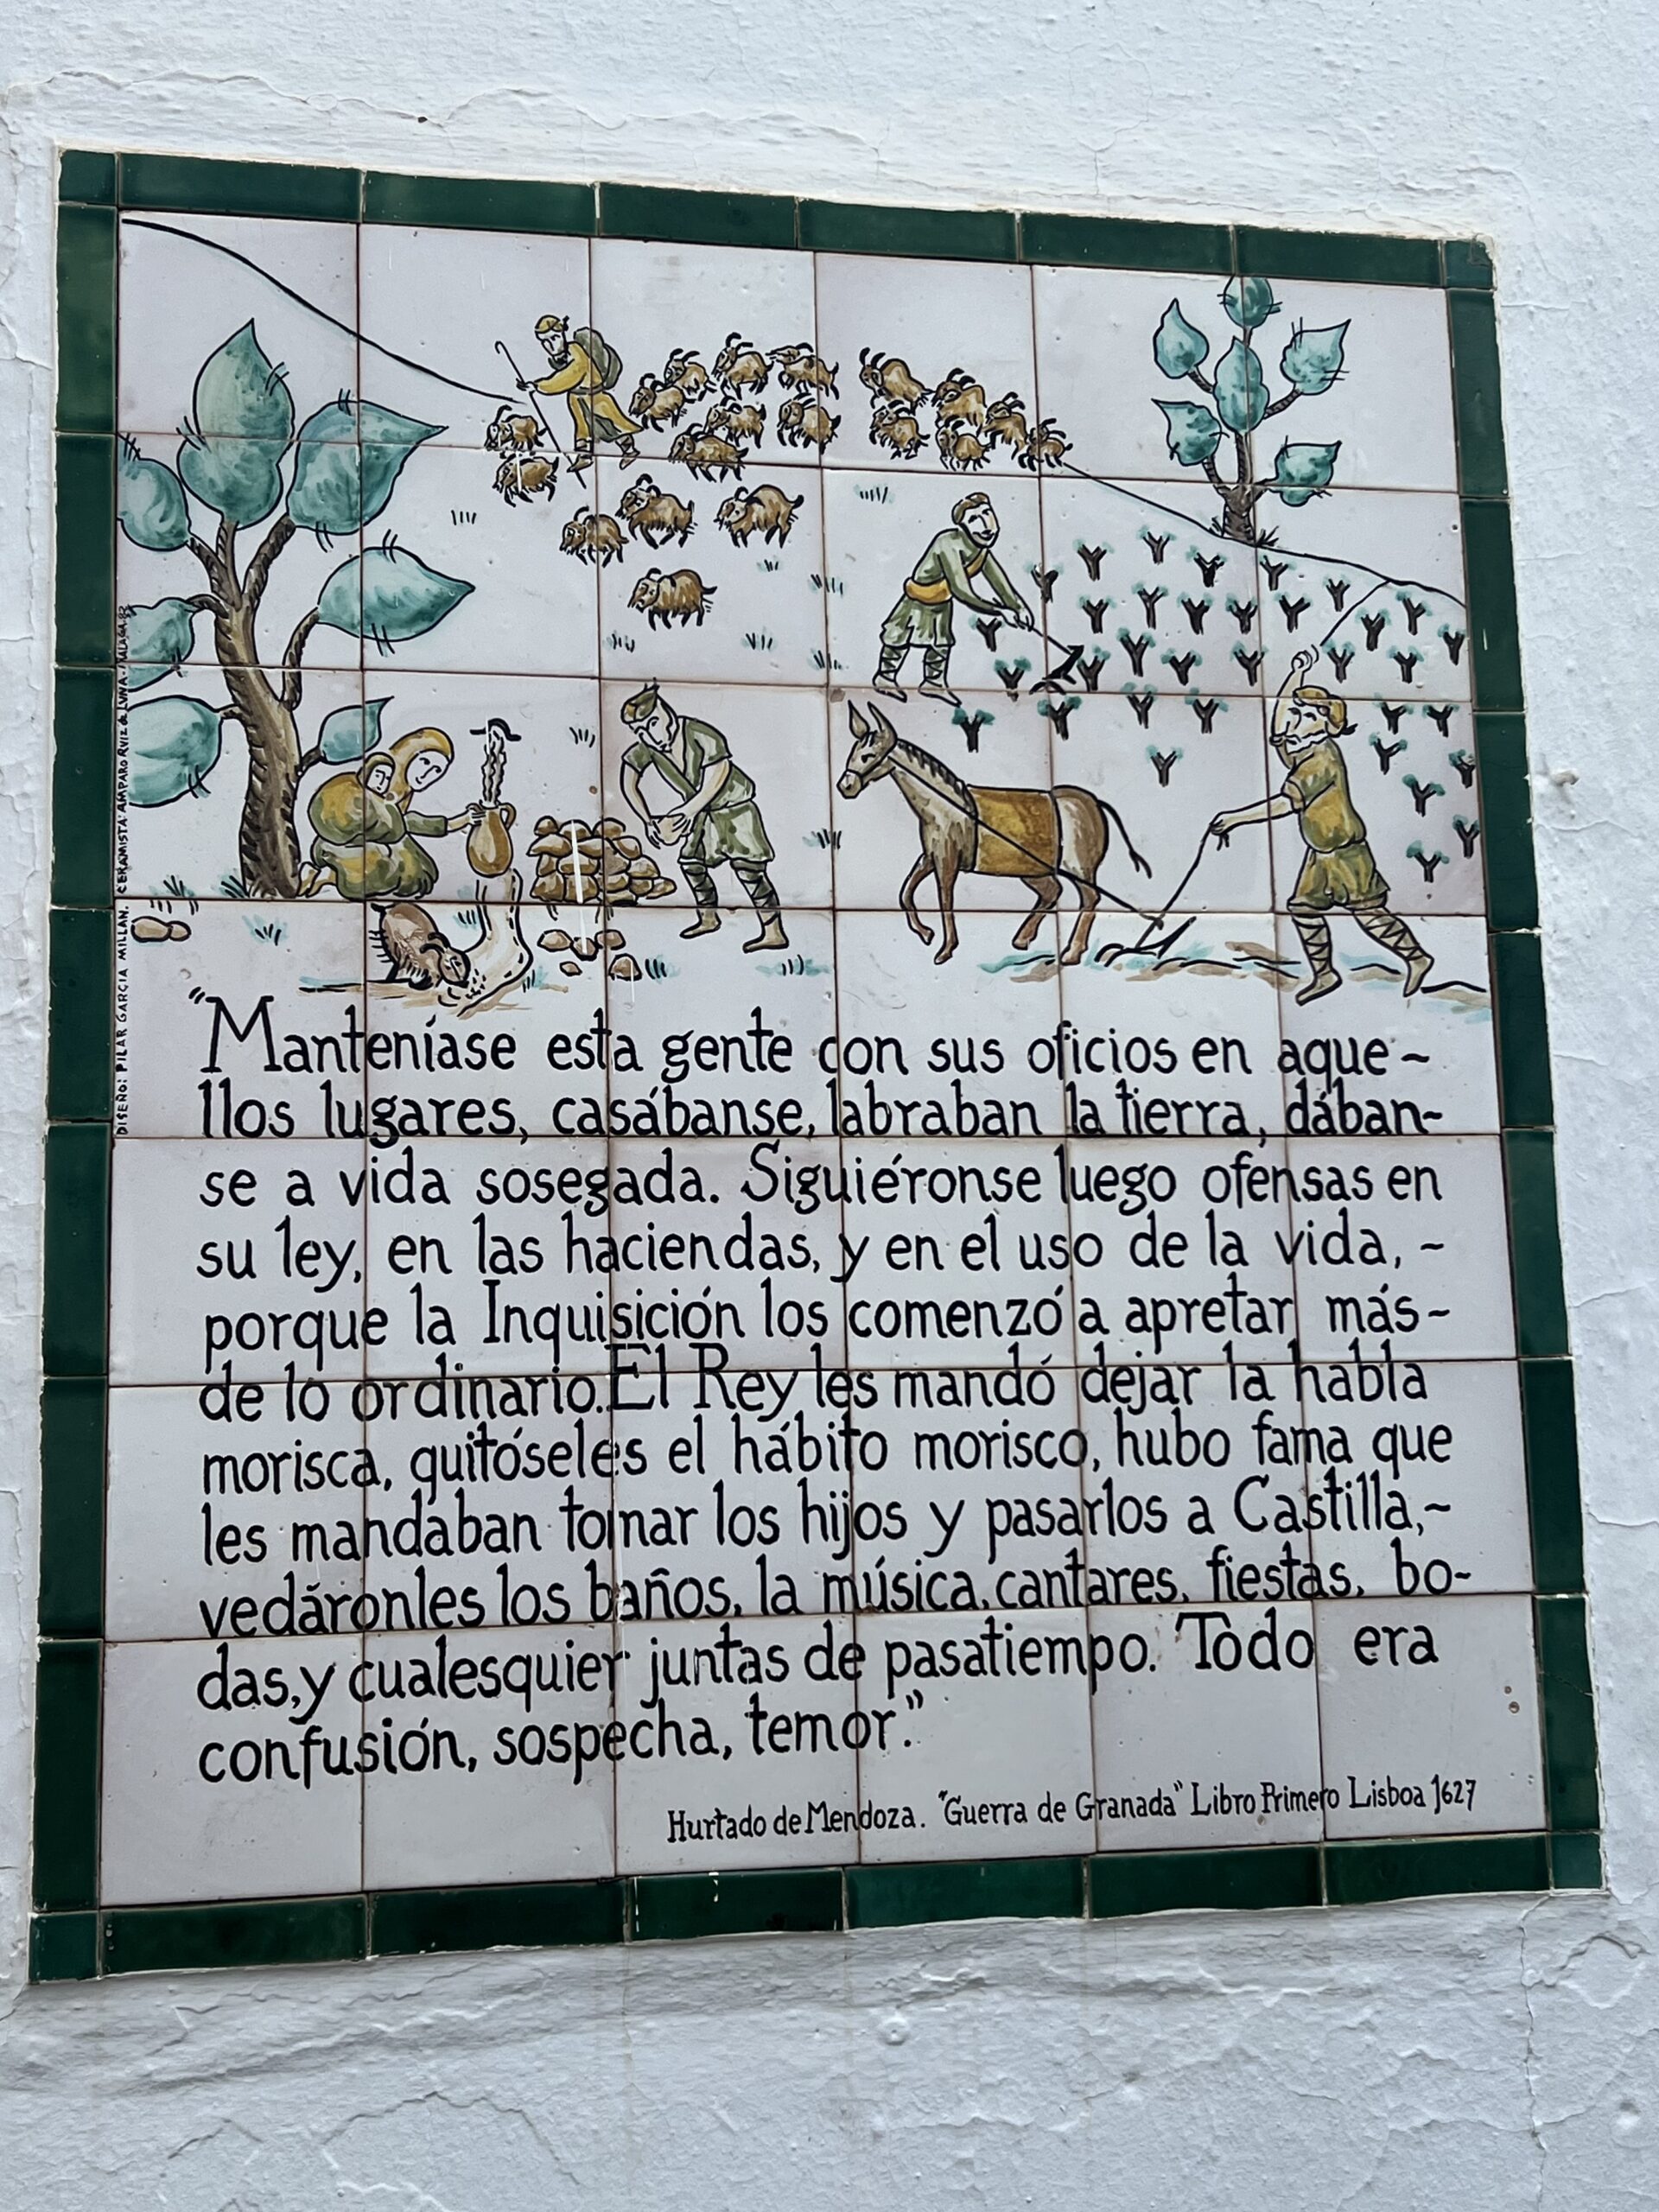 "Manteníase esta gente con sus oficios en aque~
llos lugares, casábanse, labraban la tierra, dában~
se a vida sosegada. Siguiéronse luego ofensas en
su ley, en las haciendas, y en el uso de la vida, ~
porque la Inquisición los comenzó a apretar más~
de lo ordinario. El Rey les mandó dejar la habla
morisca, quitóseles el hábito morisco, hubo fama que
les mandaban tomar los hijos y pasarlos a Castilla,~
vedáronles los baños, la música, cantares, fiestas, bo~
das, y cualesquier juntas de pasatiempo. Todo era
confusión, sospecha, temor."
Hurtado de Mendoza. "Guerra de Granada" Libro Primero Lisboa 1627
DISEÑO: PILAR GARCIA MILLAN. CERAMISTA: AMPARO RUIZ de LUNA - MALAGA 82